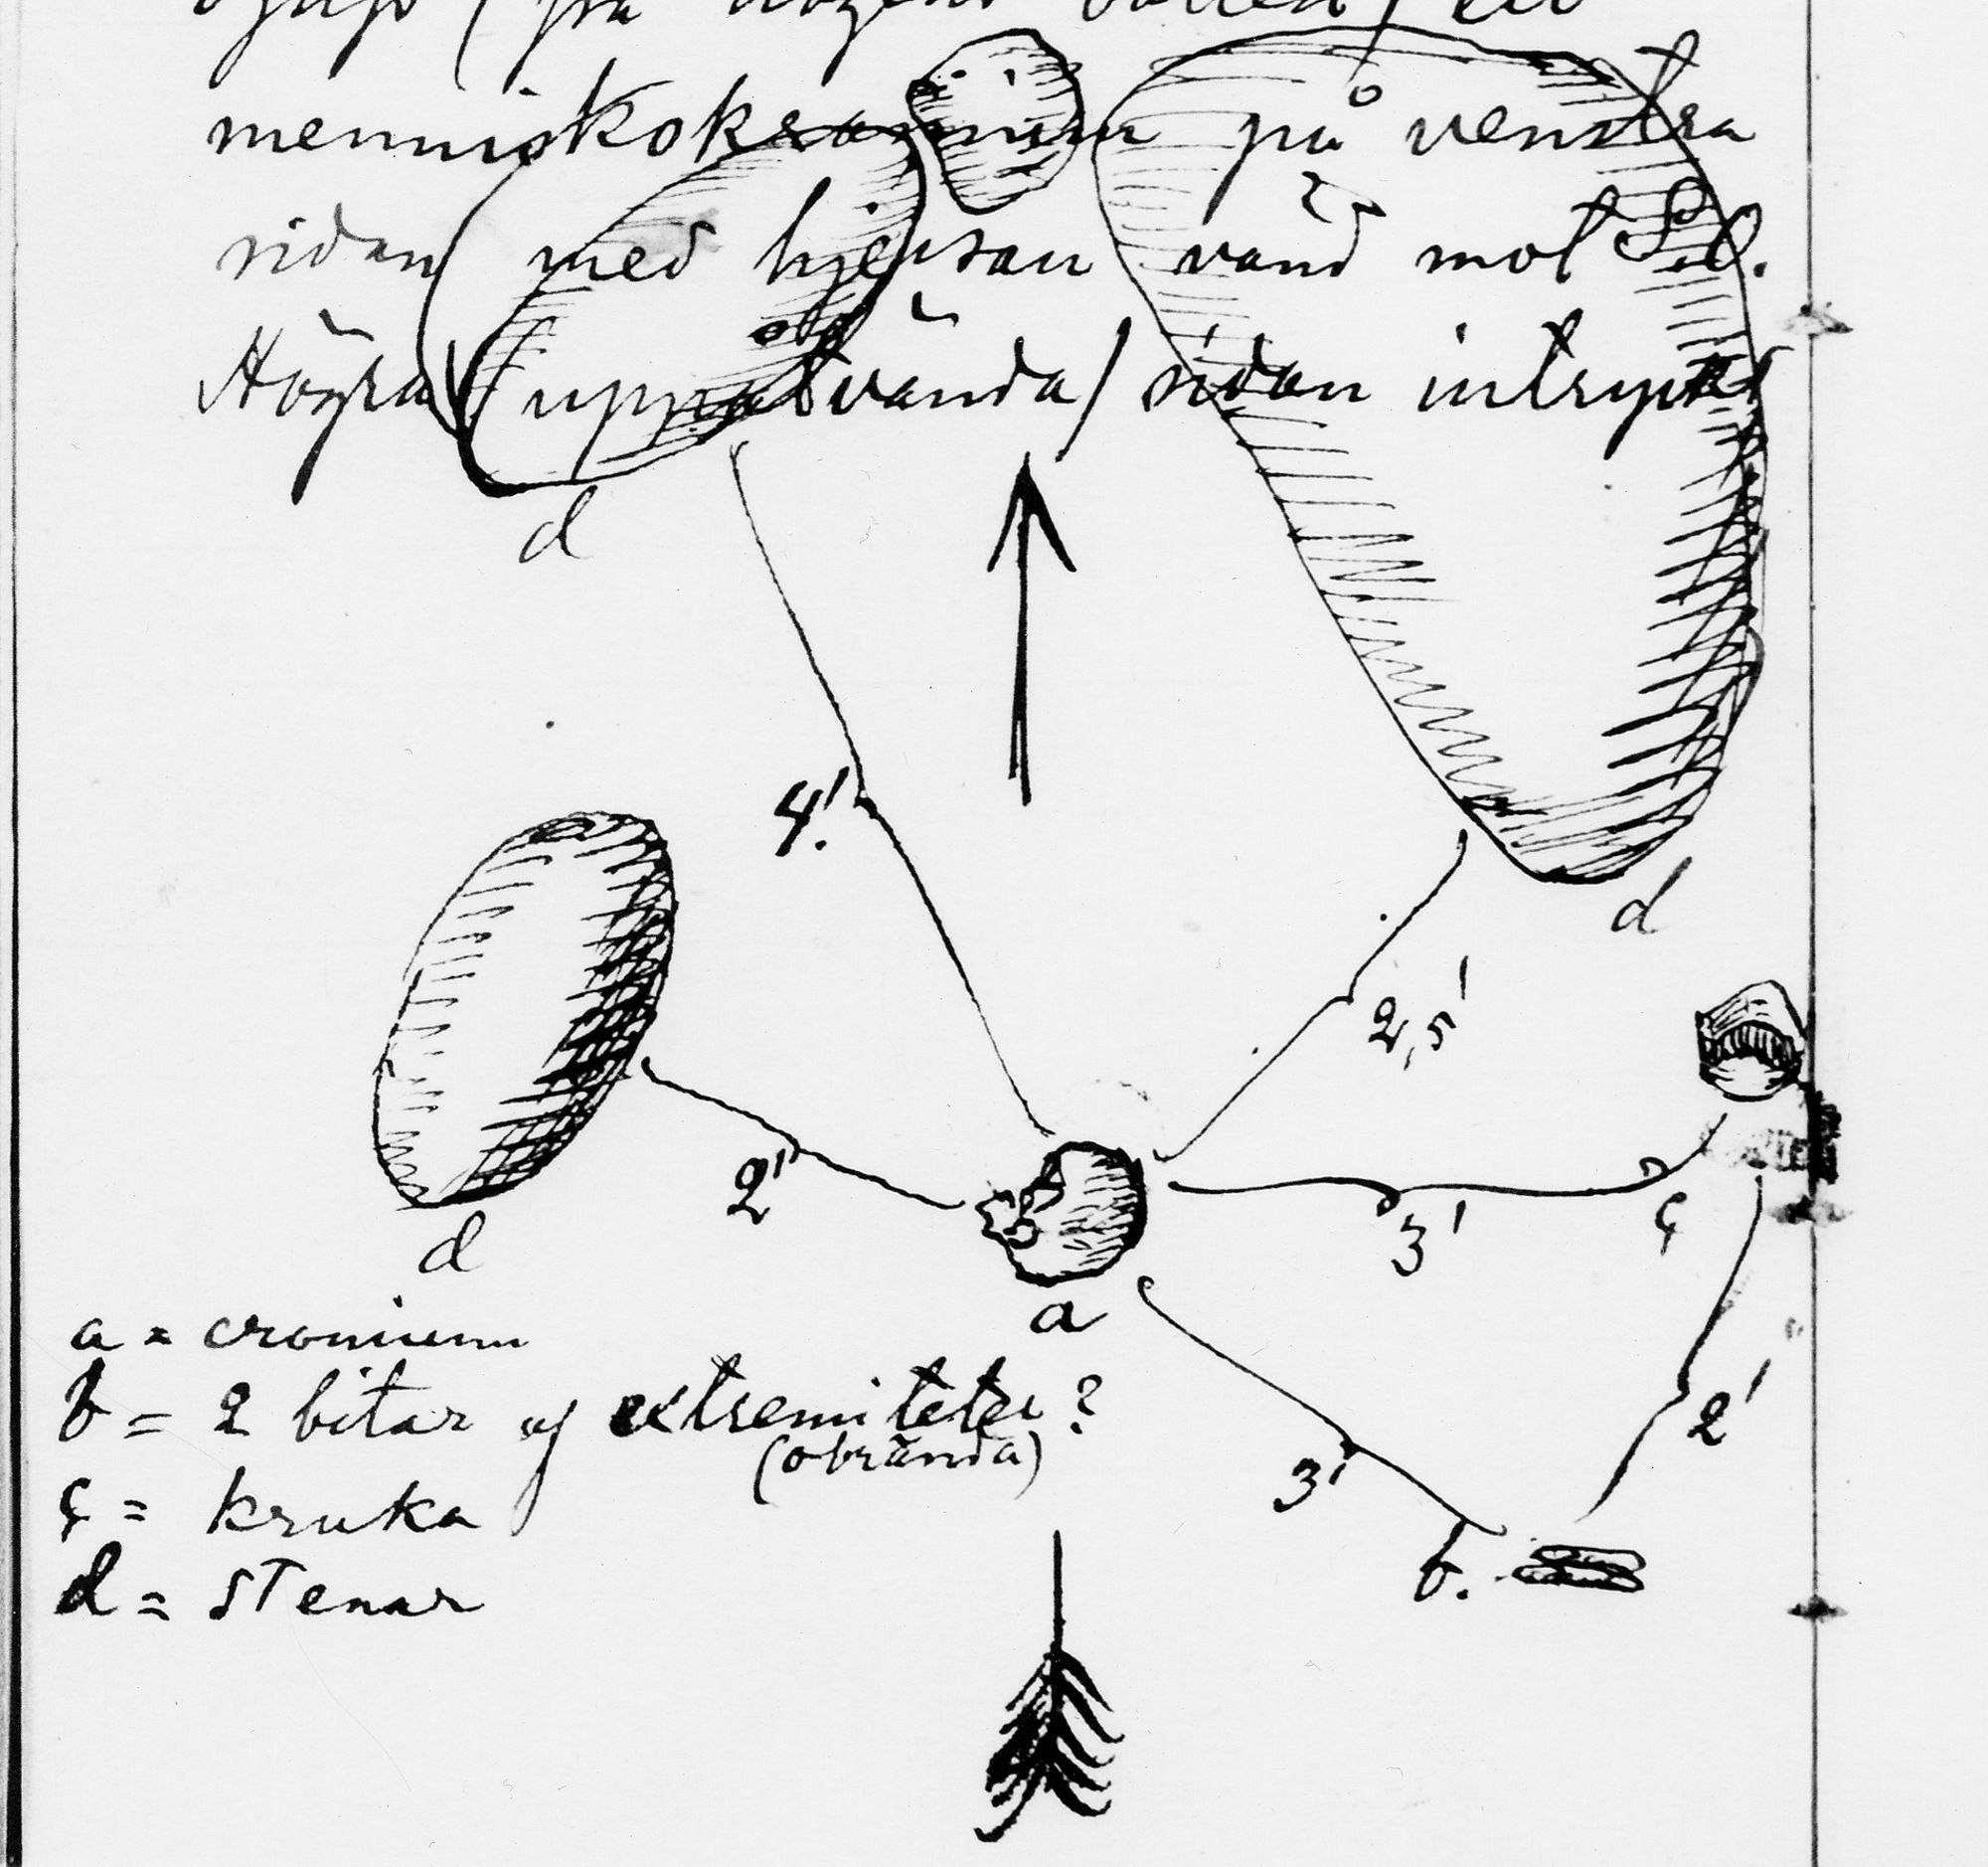 menniskokranium på venstra
sidan med hjessan vänd mot S.O.
Högra (uppåtvända) sidan intryckt
d
4'.
d
2,5'
2'
3'
ç
d
a
2'
3'
b.
a = cranium
b = 2 bitar af extremiteter?
(obrända)
ç = kruka
d = stenar